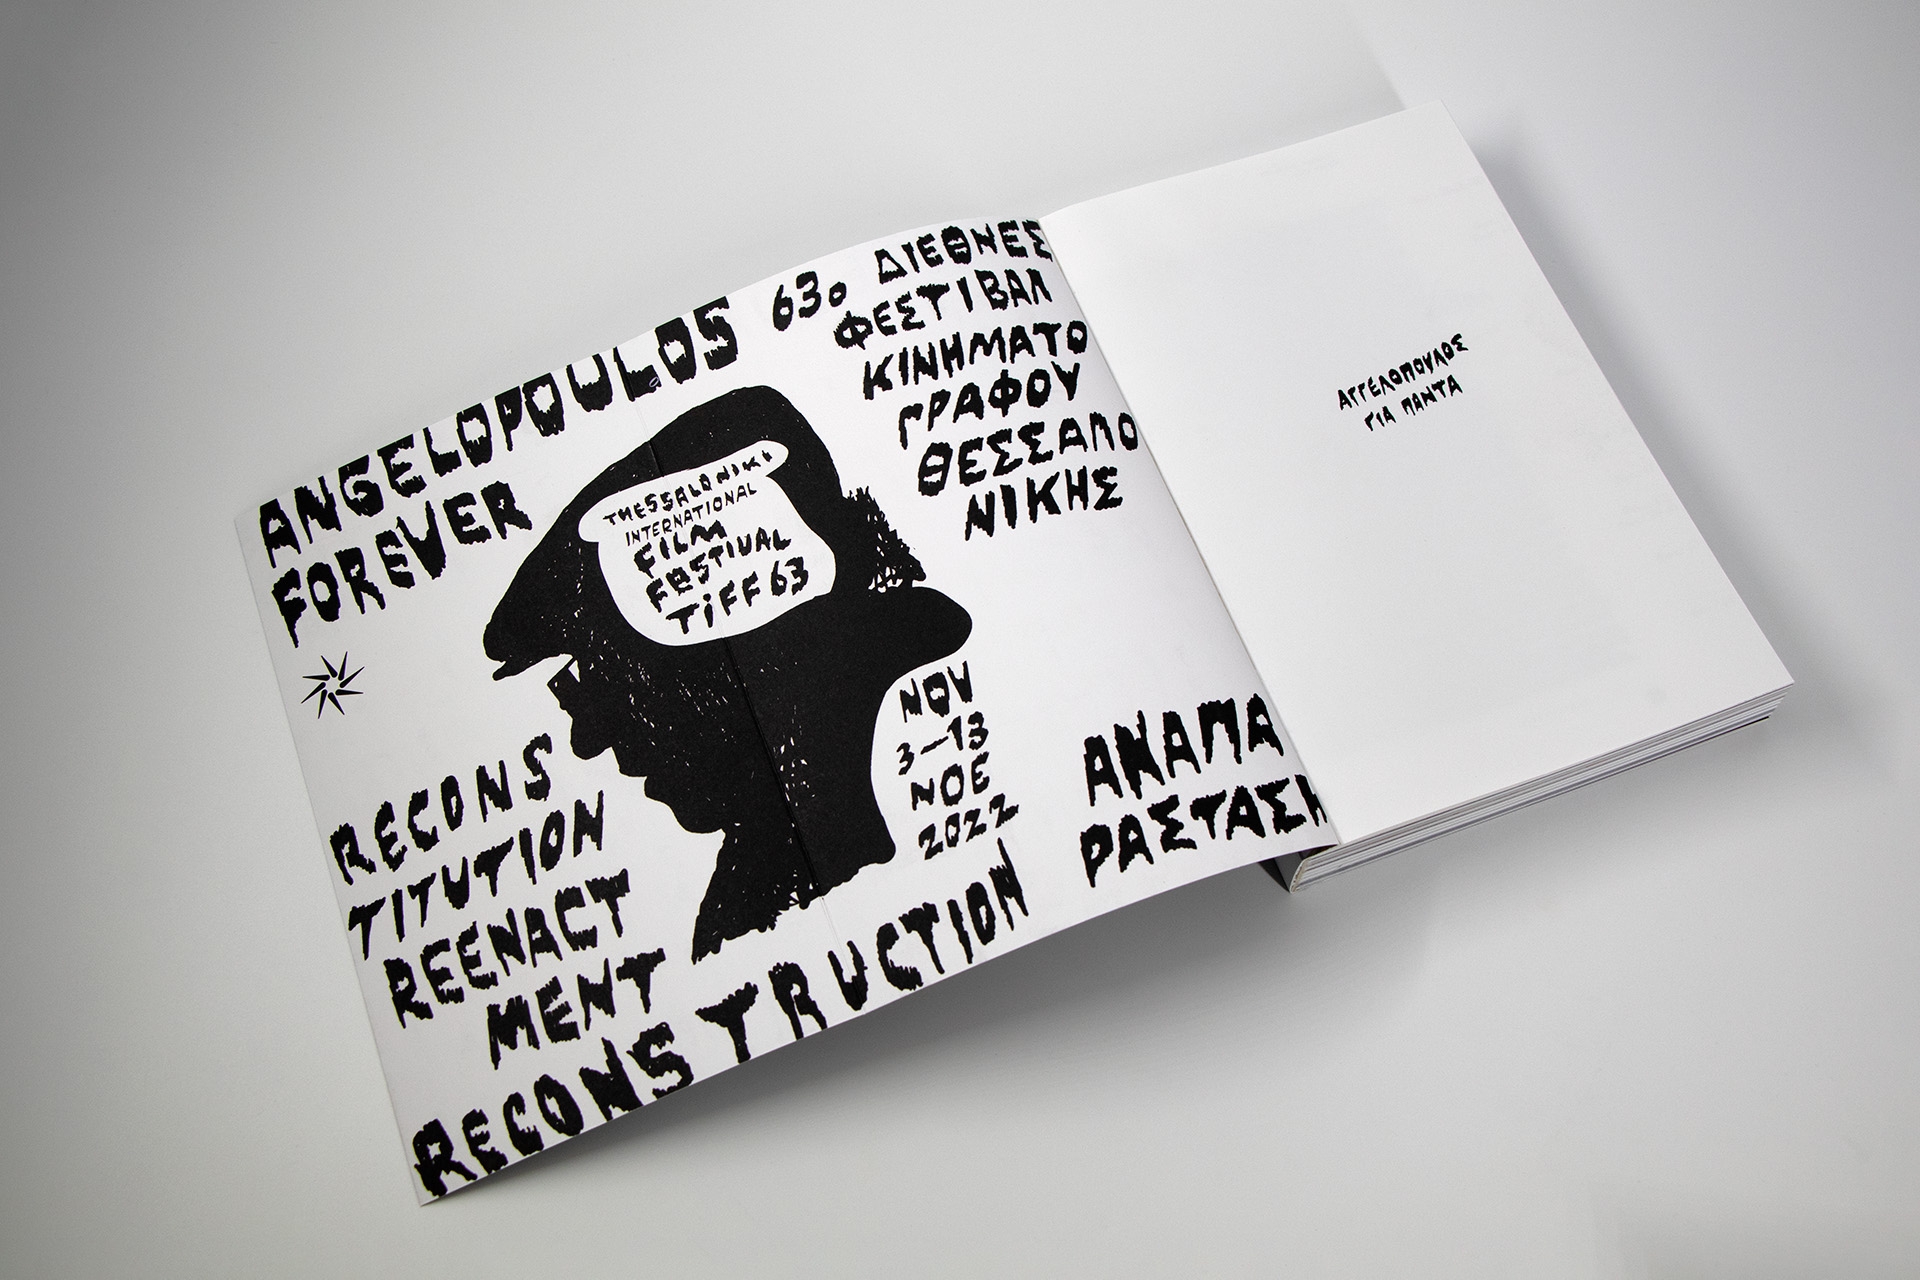 ANGELOPOULOS
FOREVER
63ο ΔΙΕΘΝΕΣ
ΦΕΣΤΙΒΑΛ
ΚΙΝΗΜΑΤΟ
ΓΡΑΦΟΥ
ΘΕΣΣΑΛΟ
ΝΙΚΗΣ
THESSALONIKI
INTERNATIONAL
FILM
FESTIVAL
TiFF 63
NOV
3—13
ΝΟΕ
2022
RECONS
TITUTION
REENACT
MENT
RECONSTRUCTION
ΑΝΑΠΑ
ΡΑΣΤΑΣΗ
ΑΓΓΕΛΟΠΟΥΛΟΣ
ΓΙΑ ΠΑΝΤΑ